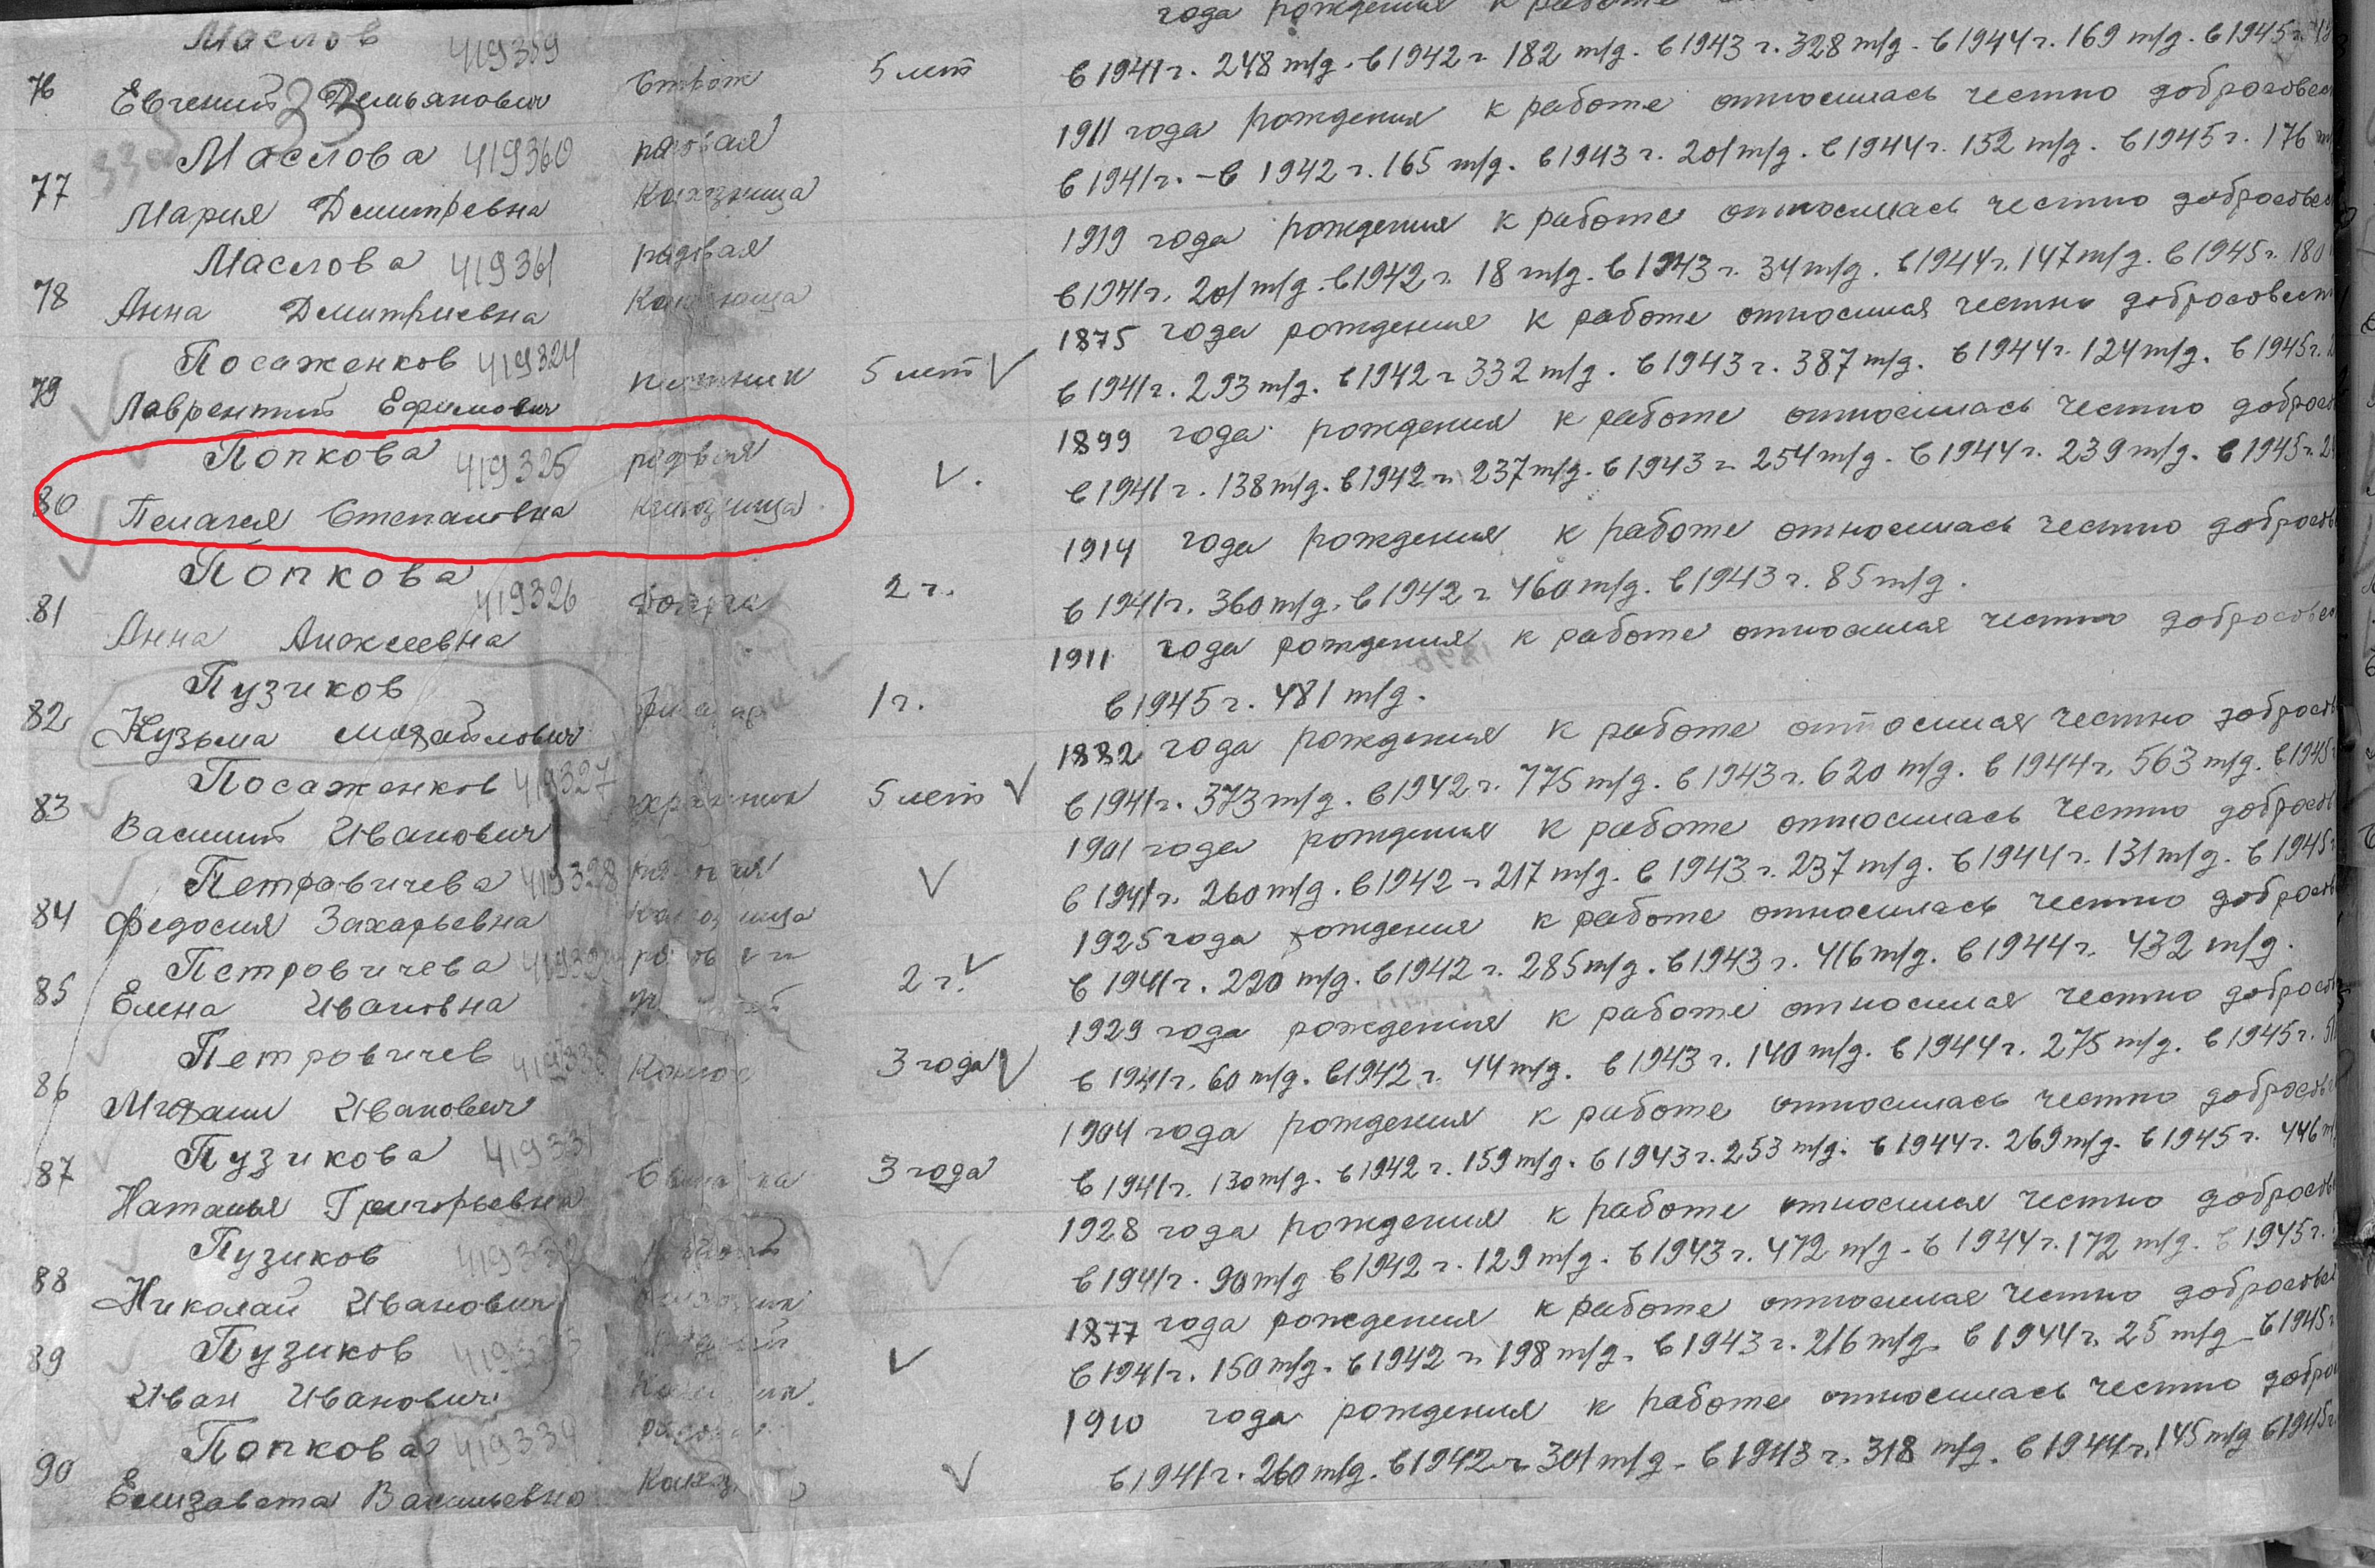 года рождения к работе
Маслов 419359 в 1941 г. 248 т/д. в 1942 г. 182 т/д. в 1943 г. 328 т/д. в 1944 г. 169 т/д. в 1945 г.
76 Евгений Демьянович сторож 5 лет
33 1911 года рождения к работе относилась честно
Маслова 419360 рядовая в 1941 г. - в 1942 г. 165 т/д. в 1943 г. 201 т/д. в 1944 г. 152 т/д. в 1945 г. 176
77 Мария Дмитревна колхозница
1919 года рождения к работе относилась честно
Маслова 419361 рядовая в 1941 г. 201 т/д. в 1942 г. 18 т/д. в 1943 г. 34 т/д. в 1944 г. 147 т/д. в 1945 г. 180
78 Анна Дмитриевна колхозница
1875 года рождения к работе относился честно
Посаженков 419324 в 1941 г. 293 т/д. в 1942 г. 332 т/д. в 1943 г. 387 т/д. в 1944 г. 124 т/д. в 1945 г.
79 Лаврентий Ефимович плотник 5 лет V
1899 года рождения к работе относилась честно
Попкова 419325 рядовая V. в 1941 г. 138 т/д. в 1942 г. 237 т/д. в 1943 г. 254 т/д. в 1944 г. 239 т/д. в 1945 г.
80 Пелагея Степановна колхозница
1914 года рождения к работе относилась честно
Попкова 419326 2 г. в 1941 г. 360 т/д. в 1942 г. 460 т/д. в 1943 г. 85 т/д.
81 Анна Алексеевна
1911 года рождения к работе относился честно
Пузиков 1 г. в 1945 г. 481 т/д.
82 Кузьма Михайлович
1882 года рождения к работе относился честно
Посаженков 419327 5 лет V в 1941 г. 373 т/д. в 1942 г. 775 т/д. в 1943 г. 620 т/д. в 1944 г. 563 т/д. в 1945
83 Василий Иванович
1901 года рождения к работе относилась честно
Петровичева 419328 рядовая V в 1941 г. 260 т/д. в 1942 г. 217 т/д. в 1943 г. 237 т/д. в 1944 г. 131 т/д. в 1945
84 Федосия Захарьевна колхозница
1925 года рождения к работе относилась честно
Петровичева 2 г. V в 1941 г. 220 т/д. в 1942 г. 285 т/д. в 1943 г. 416 т/д. в 1944 г. 432 т/д.
85 Елена Ивановна
1929 года рождения к работе относился честно
Петровичев 419330 конюх 3 года V в 1941 г. 60 т/д. в 1942 г. 44 т/д. в 1943 г. 140 т/д. в 1944 г. 275 т/д. в 1945 г.
86 Михаил Иванович
1904 года рождения к работе относилась честно
Пузикова 419331 3 года в 1941 г. 130 т/д. в 1942 г. 159 т/д. в 1943 г. 253 т/д. в 1944 г. 269 т/д. в 1945 г. 446
87 Наталья Григорьевна
1928 года рождения к работе относился честно
Пузиков 419332 V в 1941 г. 90 т/д в 1942 г. 129 т/д. в 1943 г. 472 т/д. в 1944 г. 172 т/д. в 1945 г.
88 Николай Иванович
1877 года рождения к работе относился честно
Пузиков V в 1941 г. 150 т/д. в 1942 г. 198 т/д. в 1943 г. 216 т/д. в 1944 г. 25 т/д. в 1945
89 Иван Иванович
1910 года рождения к работе относилась честно
Попкова 419334 V в 1941 г. 260 т/д. в 1942 г. 301 т/д. в 1943 г. 318 т/д. в 1944 г. 145 т/д в 1945 г.
90 Елизавета Васильевна